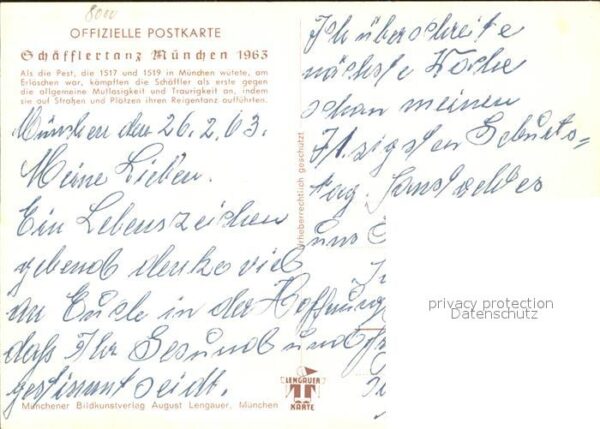 8000
OFFIZIELLE POSTKARTE
Schäfflertanz München 1963
Als die Pest, die 1517 und 1519 in München wütete, am
Erlöschen war, kämpften die Schäffler als erste gegen
die allgemeine Mutlosigkeit und Traurigkeit an, indem
sie auf Straßen und Plätzen ihren Reigentanz aufführten.
München den 26.2.63.
Meine Lieben.
Ein Lebenszeichen
gebend denke viel
an Euch in der Hoffnung
daß Ihr Gesund und
gestimmt seidt.
Münchener Bildkunstverlag August Lengauer, München
Urheberrechtlich geschützt
LENGAUER
KARTE
Ich überschreite
nächste Woche
schon meinen
71.zigsten Geburts=
tag. Sonst geht es
uns
privacy protection
Datenschutz